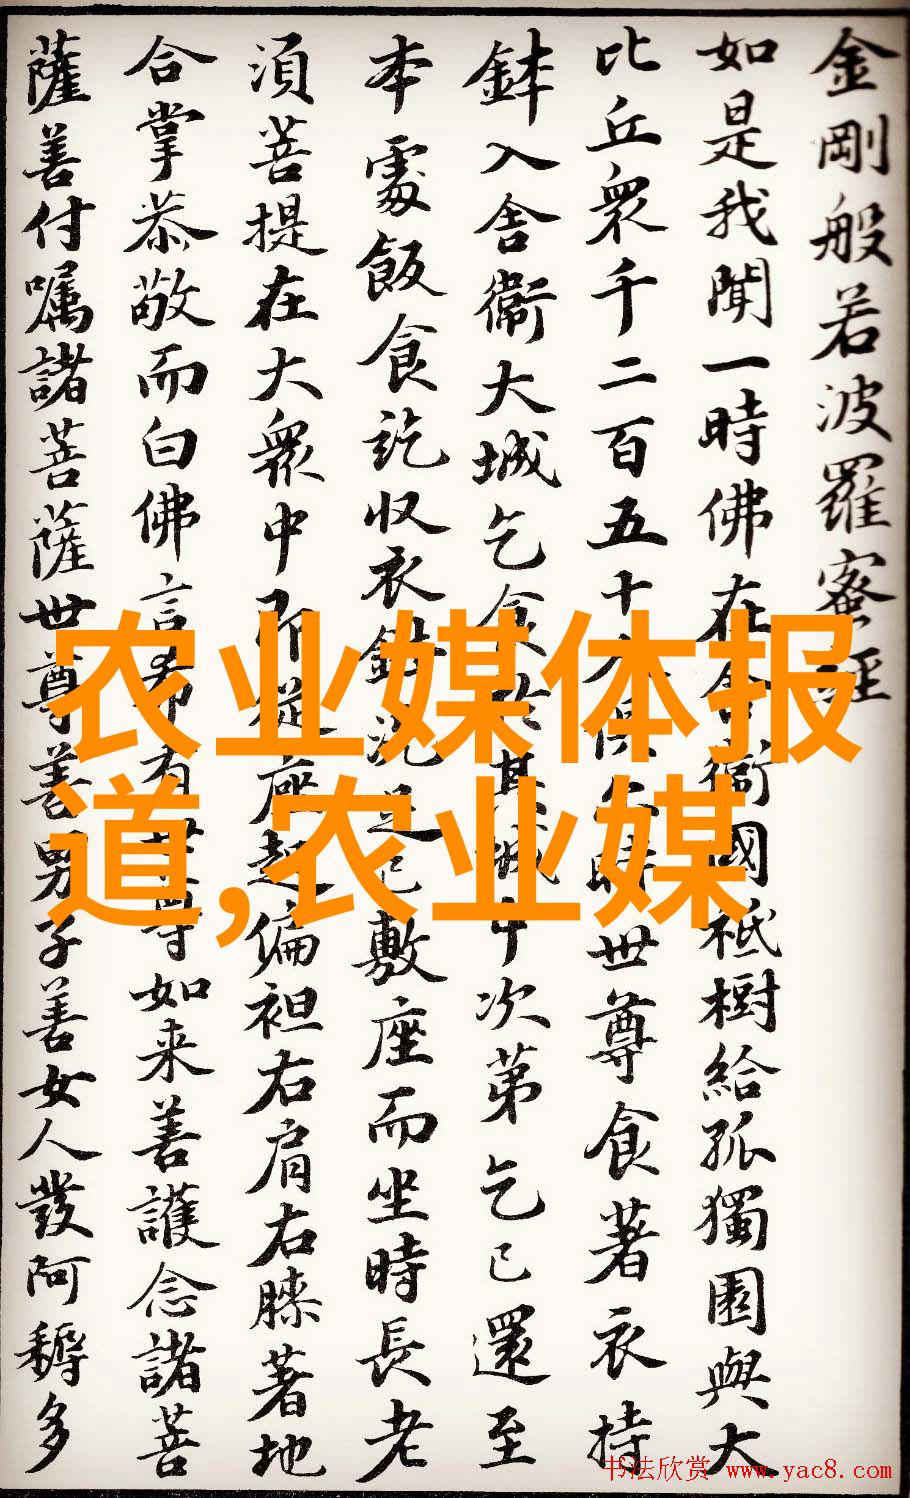 金剛般若波羅蜜經
如是我聞一時佛在舍衛國祇樹給孤獨園與大
比丘衆千二百五十人俱尒時世尊食著衣持
鉢入舍衛大城乞食於其城中次第乞已還至
本處飯食訖収衣鉢洗足已敷座而坐時長老
須菩提在大衆中即從座起偏袒右肩右膝著地
合掌恭敬而白佛言希有世尊如来善護念諸菩
薩善付囑諸菩薩世尊善男子善女人發阿耨多
农业媒体报
道,农业媒
书法欣赏 www.yac8.com